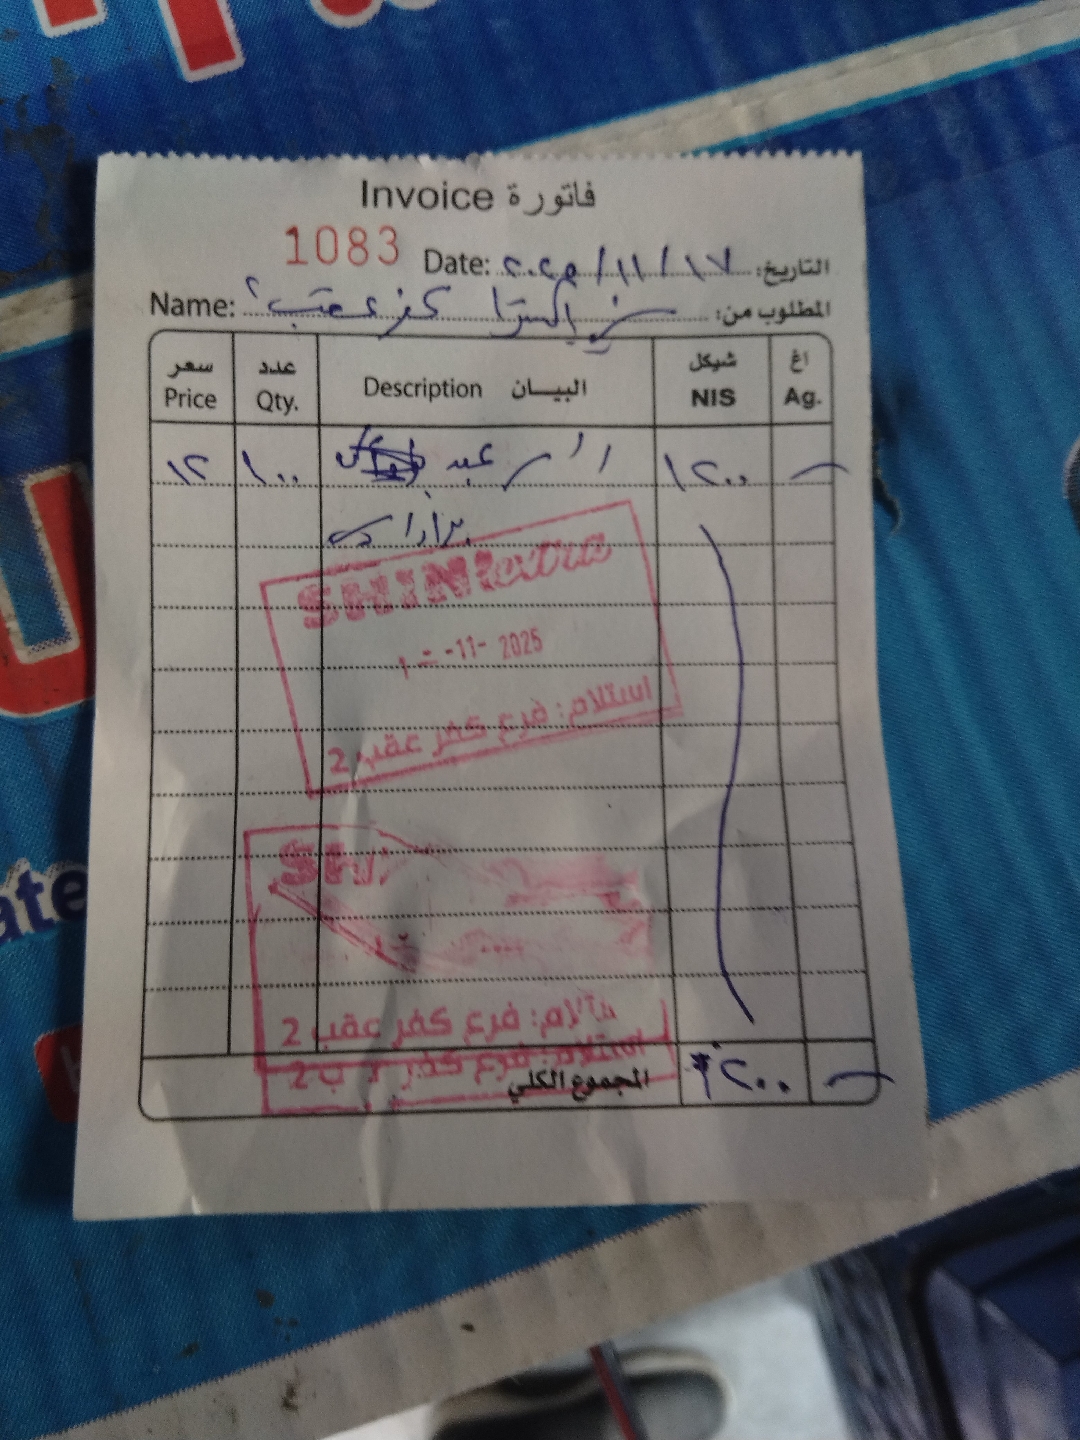 Invoice فاتورة
1083
Date: ٢٠٢٥/١١/١٧ التاريخ:
Name: كفر عقب ٢ المطلوب من:
سعر Price عدد Qty. البيان Description شيكل NIS اغ Ag.
١٢ ١٠٠ ١٢٠٠
SHINIextra
-11- 2025
استلام: فرع كفر عقب 2
فرع كفر عقب 2
استلام: فرع كفر
المجموع الكلي ١٢٠٠
ate